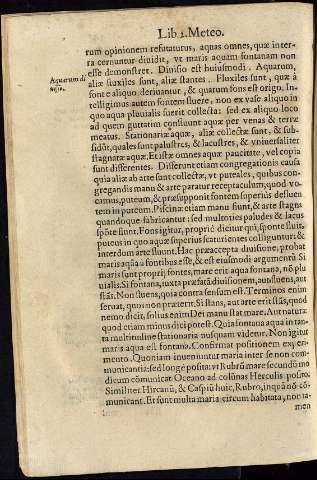 Lib 2. Meteo.
rum opinionem refutaturus, aquas omnes, quæ inter-
ra cernuntur diuidit, vt maris aquam fontanam non
esse demonstret. Diuisio est huiusmodi. Aquarum,
Aquarum di
aliæ fluxiles sunt, aliæ stantes. Fluxiles sunt, quæ à
fonte aliquo deriuantur, & quarum fons est origo. In-
telligimus autem fontem fluere, non ex vase aliquo in
quo aqua pluuialis fuerit collecta: sed ex aliquo loco
ad quem guttatim confluunt aquæ per venas & terræ
meatus. Stationariæ aquæ, aliæ collectæ sunt, & sub-
sidūt, quales sunt palustres, & lacustres, & vniuersaliter
stagnatæ aquæ. Et istæ omnes aquæ paucitate, vel copia
sunt differentes. Differunt etiam congregationis causa
quia aliæ ab arte sunt collectæ, vt puteales, quibus con-
gregandis manu & arte paratur receptaculum, quod vo-
camus, puteum, & præsupponit fontem superius defluen
tem in puteum. Piscinæ etiam manu fiunt, & arte stagna
quandoque fabricantur: sed multoties paludes & lacus
spōte fiunt. Fons igitur, propriè dicitur qui sponte fluit,
puteus in quo aquæ superius scaturientes colliguntur: &
interdum arte fiunt. Hac præaccepta diuisione, probat
maris aquā à fontibus esse, & est eiusmodi argumentū Si
maris sunt proprij fontes, mare erit aqua fontana, nō plu
uialis. Si fontana, iuxta præfatā diuisionem, aut fluens, aut
stās. Non fluens, quia contra sensum est. Terminos enim
seruat, quos non præterit. Si stans, aut arte erit stās, quod
nemo dicit, solius enim Dei manu stat mare. Aut natura:
quod etiam minus dici potest. Quia fontana aqua in tan-
ta multitudine stationaria nusquam videtur. Non igitur
maris aqua est fontana. Confirmat positionem experi-
mento. Quoniam inueniuntur maria inter se non com-
municantia: sed longè posita: vt Rubrū mare secundū mo
dicum cōmunicat Oceano ad colūnas Herculis posito.
Similiter Hircanū, & Caspiū huic, Rubro, inquā nō cō-
municant. Et sunt multa maria circum habitata, non ta-
men